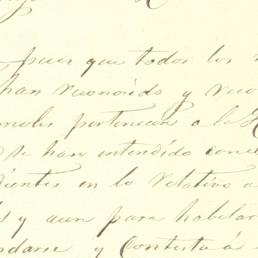 pues que todos los
han reconocido y reco
pertenecen a la
se han entendido con el
dientes en lo relativo a
y aun para habilar
darse y Contesta á